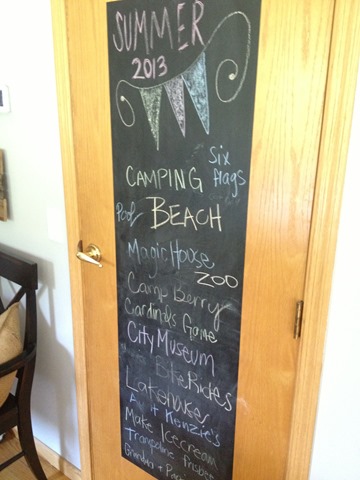 SUMMER
2013
Six
flags
CAMPING
Pool
BEACH
Magic House
ZOO
Camp Berry
Cardinals Game
City Museum
Bike Rides
Lakehouse
Art @ Kenzie's
Make Icecream
Trampoline frisbee